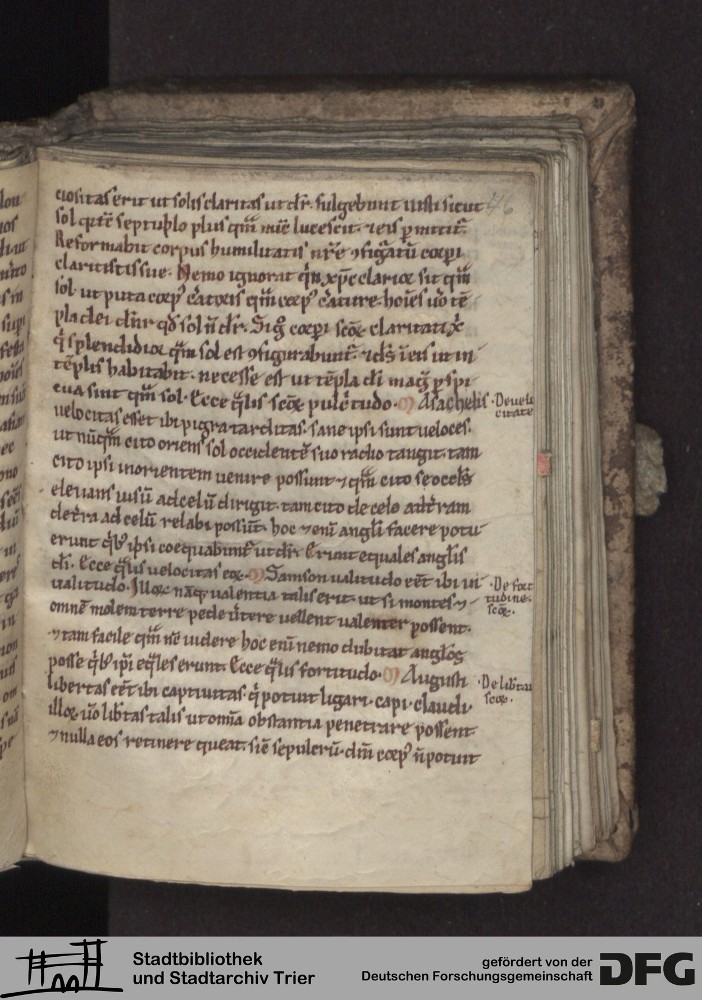 ciositas erit ut solis claritas ut dr̄. fulgebunt iusti sicut 46
sol qͥ tc̄ septuplo plus quā nūc lucescit. ⁊ eis pmittit͛.
Reformabit corpus humilitatis nr̄e ꝯfiguratū corpi
claritatis sue. Nemo ignorat qn̄ xp̄c clarior sit quā
sol. ut puta corp᷒ creatoris quā corp᷒ creature. hoīes u͛o tē
pla dei dn̄r qd̄ sol n̄ dr̄. Si g͛ corpi scōꝝ claritati xp̄i
q͛ splendidior quā sol est ꝯfigurabunt͛. ⁊ ds̄ ī eis ut in
tēplis habitabit. necesse est ut tēpla di magͥ pspi
cua sint quā sol. Ecce qͣlis scōꝝ pulcͥtudo. Asachelis
velocitas esset ibi pigra tarditas. sane ipsi sunt ueloces.
ut nūquā cito oriens sol occidentē suo radio tangit. tam
cito ipsi in orientem uenire possunt ⁊ quā cito se ocl̄s
eleuans uisū ad celū dirigit. tam cito de celo ad tr̄ram
de tr̄ra ad celū relabi possūt. hoc ⁊enī angli facere potu
erunt qͥb᷒ ipsi coequabunt͛ ut dr̄. Erunt equales anglis
di. Ecce qͣlis uelocitas eoꝝ. Samson ualitudo eēt ibi in
ualitudo. Illoꝝ naq; ualentia talis erit. ut si montes ⁊
omnē molem terre pede u͛tere uellent ualenter possent.
⁊ tam facile quā nc̄ uidere hoc enī nemo dubitat anglos
posse qͥb᷒ ipi eqͣles erunt. Ecce qͣlis fortitudo. Augusti
libertas eēt ibi captiuitas. qͥ potuit ligari. capi. claudi.
illoꝝ u͛o lib͛tas talis ut omīa obstantia penetrare possent
⁊ nulla eos retinere queat. sic̄ sepulcrū. dn̄i corp᷒ n̄ potuit
De uelo
citate
De fort
tudine.
scōꝝ.
De lib͛tat
scōꝝ.
Stadtbibliothek
und Stadtarchiv Trier
gefördert von der
Deutschen Forschungsgemeinschaft
DFG